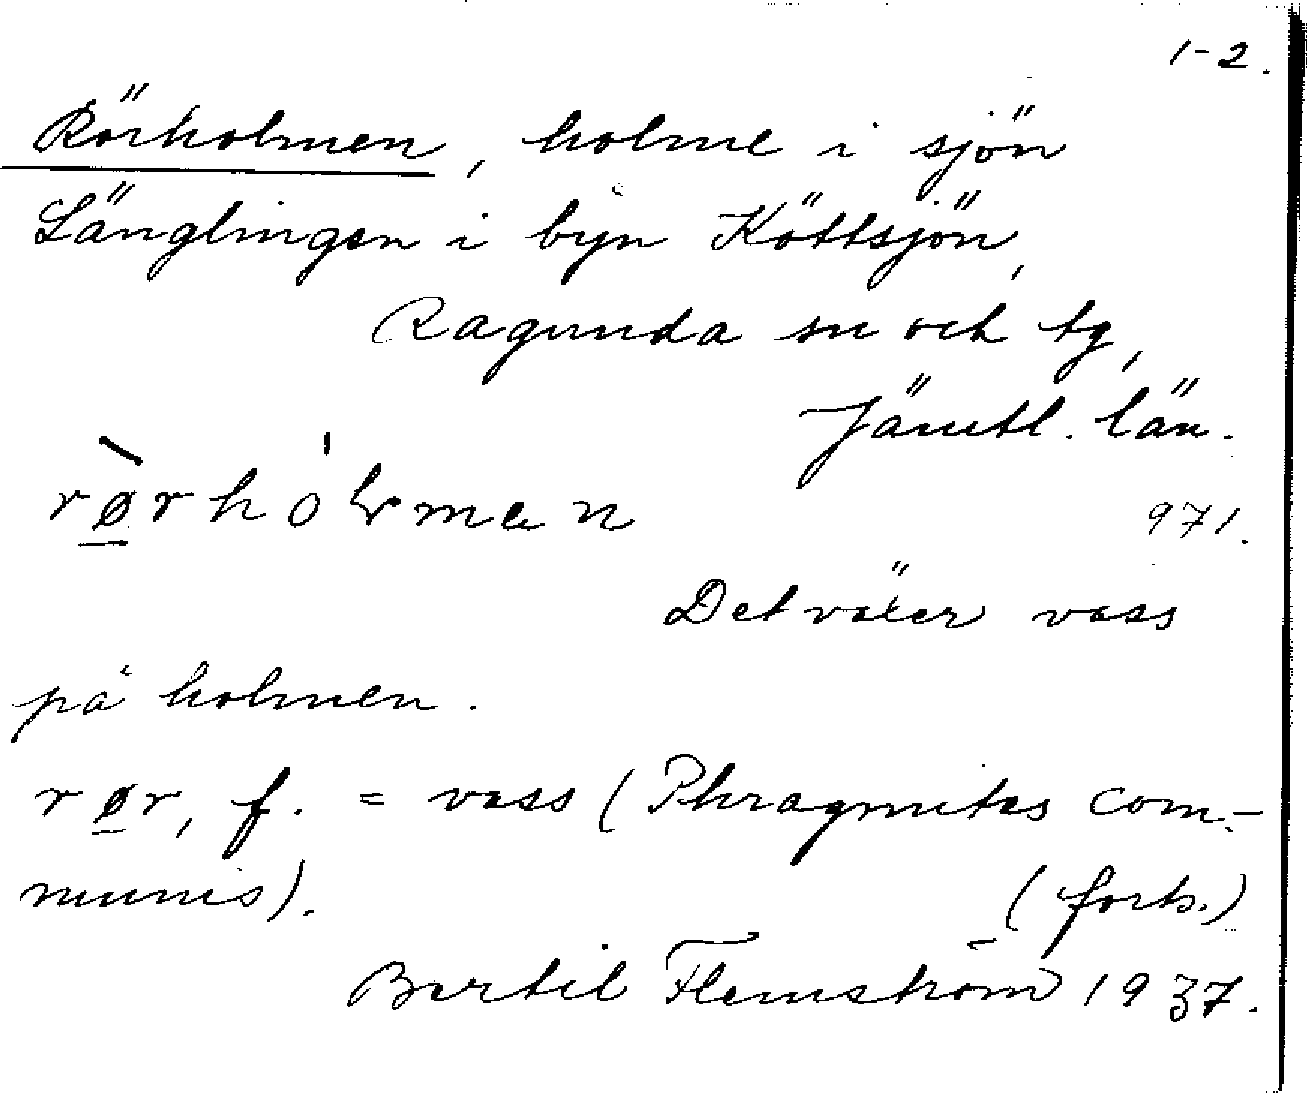 1-2.
Rörholmen, holme i sjön
Länglingen i byn Köttsjön,
Ragunda sn och tg,
Jämtl. län.
rø̲̀rhól̥men
971.
Det växer vass
på holmen.
rø̲r, f. = vass (Phragmites com-
munis).
(forts.)
Bertil Flemström 1937.